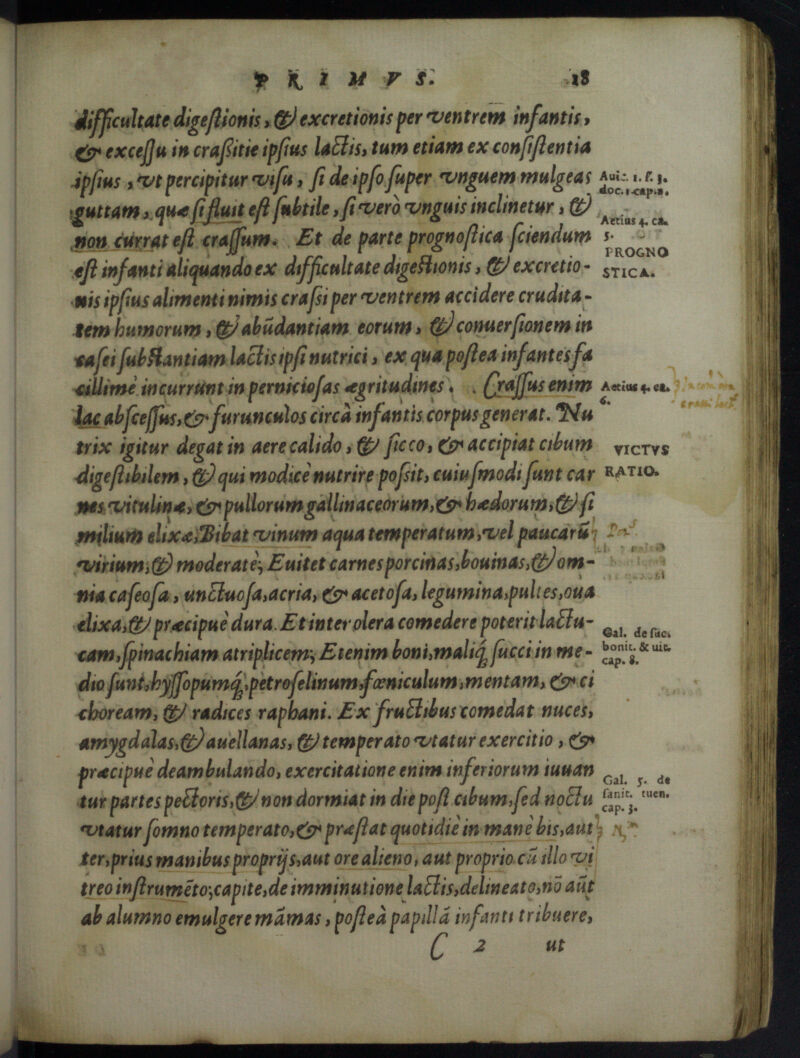 PRIMVS. 18
difficultate digestionis, & excretionis per ventrem infantis,
& excessu in crassitie ipsius lactis, tum etiam ex consistentia
ipsius, vt percipitur visu, si de ipso super vnguem mulgeas
guttam, quæ si fluit est subtile, si vero vnguis inclinetur, &
non currat est crassum. Et de parte prognostica sciendum
est infanti aliquando ex difficultate digestionis, & excretio-
nis ipsius alimenti nimis crassi per ventrem accidere crudita-
tem humorum, & abūdantiam eorum, & conuersionem in
casei substantiam lactis ipsi nutrici, ex qua postea infantes fa
cillime incurrunt in perniciosas ægritudines. Crassus enim
lac abscessus, & furunculos circà infantis corpus generat. Nu
trix igitur degat in aere calido, & sicco, & accipiat cibum
digestibilem, & qui modicè nutrire possit, cuiusmodi sunt car
nes vitulinæ, & pullorum gallinaceorum, & hædorum, & si
milium elixæ; Bibat vinum aqua temperatum, vel paucarū
virium, & moderatè; Euitet carnes porcinas, bouinas, & om-
nia caseosa, unctuosa, acria, & acetosa, legumina, pultes, oua
elixa, & præcipuè dura. Et inter olera comedere poterit lactu-
cam, spinachiam atriplicem; Etenim boni, maliq; succi in me-
dio sunt, hyssopumq;, petroselinum, fœniculum, mentam, & ci
choream, & radices raphani. Ex fructibus comedat nuces,
amygdalas, & auellanas, & temperato vtatur exercitio, &
præcipuè deambulando, exercitatione enim inferiorum iuuan
tur partes pectoris, & non dormiat in die post cibum, sed noctu
vtatur somno temperato, & præstat quotidiè in manè bis, aut
ter, prius manibus proprijs, aut ore alieno, aut proprio cū illo vi
treo instrumēto, capite, de imminutione lactis, delineato, nō aūt
ab alumno emulgere māmas, posteà papillā infanti tribuere,
C 2 ut
Aui:. 1. f. 3.
doc. 1. cap. 2.
Aetius 4. ca.
5.
PROGNO
STICA.
Aetius 4. ca.
6.
VICTVS
RATIO.
Gal. de suc.
bonit. & uit.
cap. 8.
Gal. 5. de
sanit. tuen.
cap. 3.